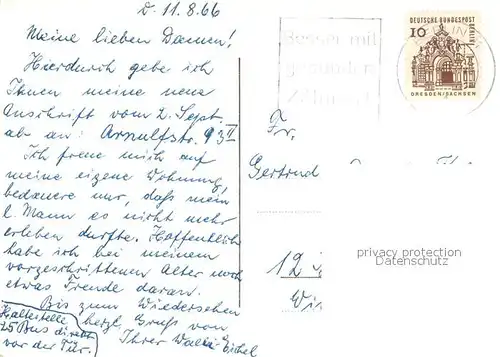 D. 11.8.66
Meine lieben Damen!
Hierdurch gebe ich
Ihnen meine neue
Anschrift vom 2. Sept.
ab an: Arnulfstr. 93 II
Ich freue mich auf
meine eigene Wohnung,
bedauere nur, daß mein
l. Mann es nicht mehr
erleben durfte. Hoffentlich
habe ich bei meinem
vorgeschrittenen Alter noch
etwas Freude daran.
Bis zum Wiedersehen
herzl. Gruß von
Ihrer
Haltestelle
25 Bus direkt
vor der Tür.
DEUTSCHE BUNDESPOST
BERLIN
10
DRESDEN/SACHSEN
Fr.
Gertrud
12
privacy protection
Datenschutz